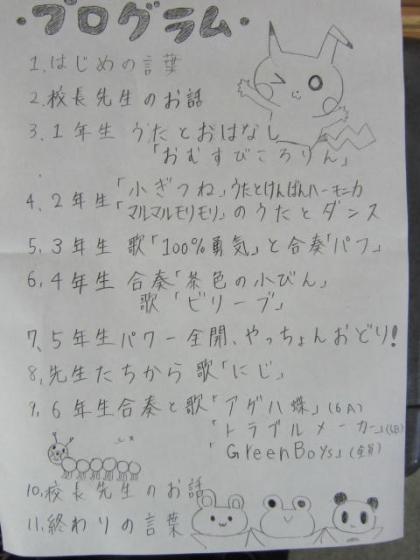 ・プログラム・
1.はじめの言葉
2.校長先生のお話
3.1年生 うたとおはなし
「おむすびころりん」
4.2年生「小ぎつね」うたとけんばんハーモニカ
「マルマルモリモリ」のうたとダンス
5.3年生 歌「100%勇気」と合奏「パフ」
6.4年生 合奏「茶色の小びん」
歌「ビリーブ」
7.5年生パワー全開、やっちょんおどり!
8.先生たちから歌「にじ」
9.6年生合奏と歌「アゲハ蝶」(6A)
「トラブルメーカー」(6B)
「GreenBoys」(全員)
10.校長先生のお話
11.終わりの言葉